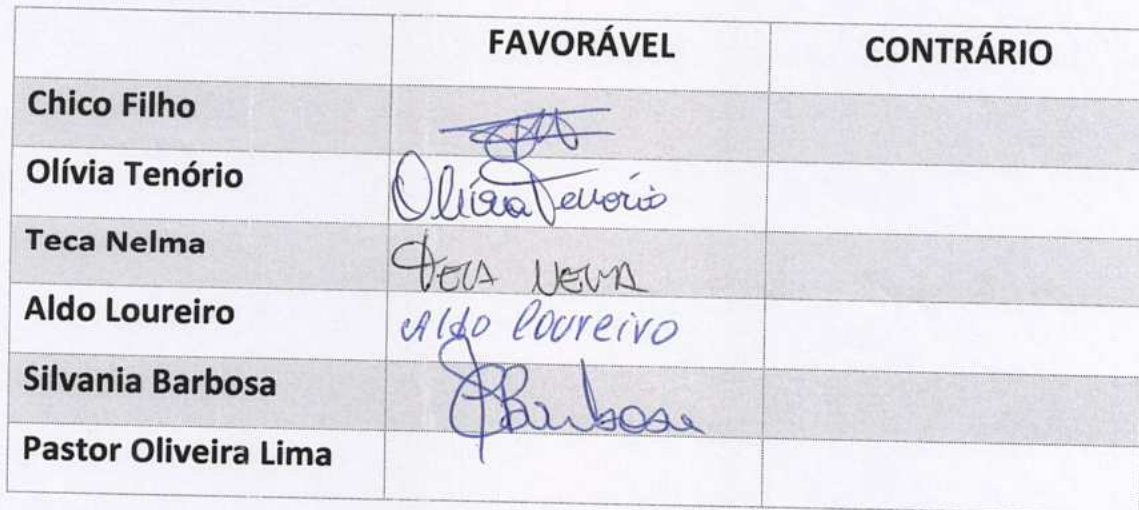 FAVORÁVEL CONTRÁRIO
Chico Filho
Olívia Tenório Olívia Tenorio
Teca Nelma TECA NELMA
Aldo Loureiro Aldo Loureiro
Silvania Barbosa SBarbosa
Pastor Oliveira Lima